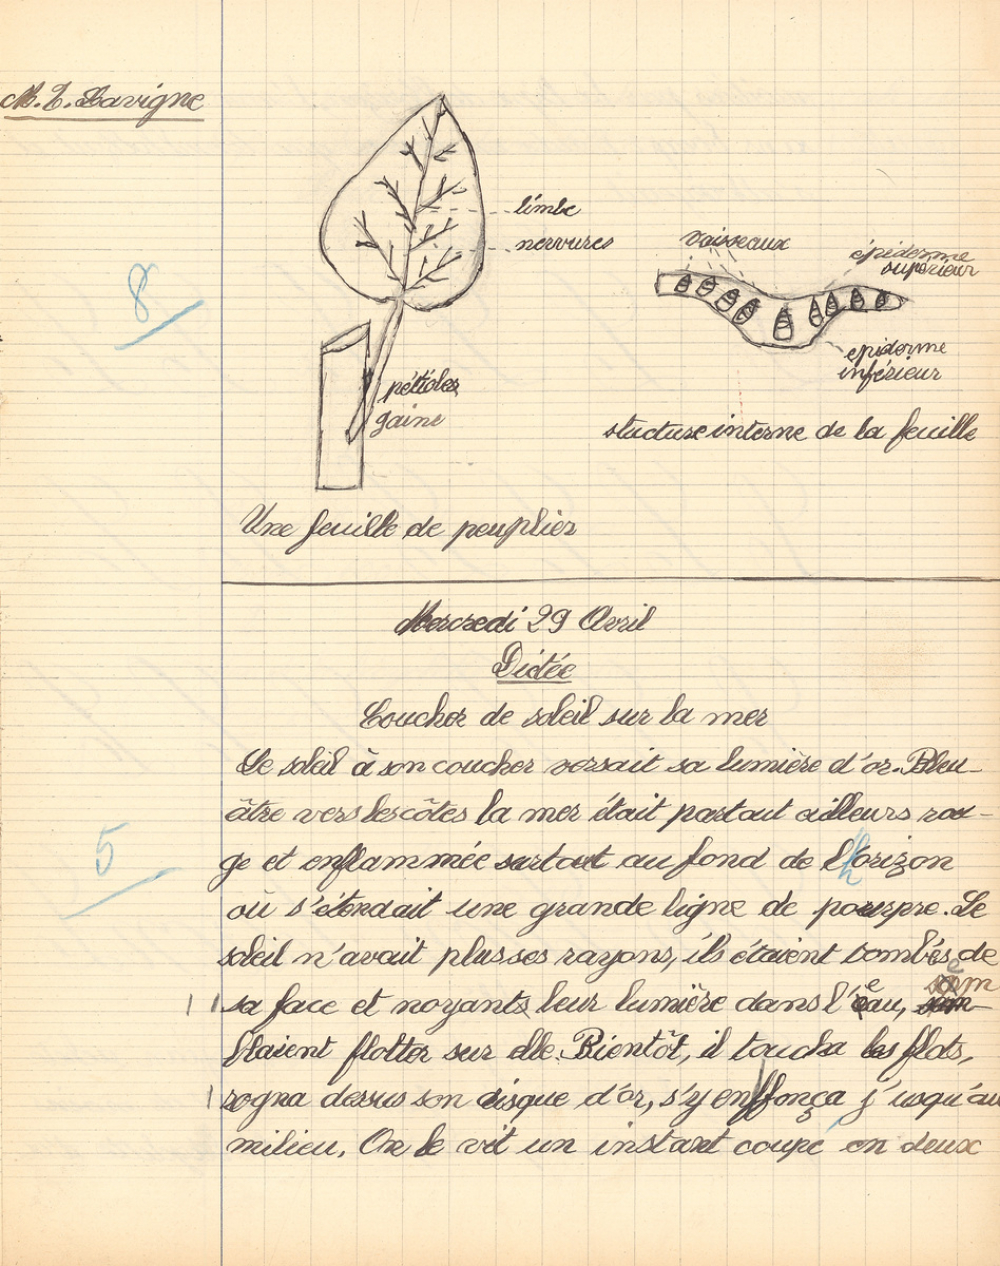 M. L. Lavigne
limbe
nervures
vaisseaux
épiderme
supérieur
8
epiderme
inférieur
pétioles
gaine
stucture interne de la feuille
Une feuille de peuplier
Mercredi 29 Avril
Dictée
Coucher de soleil sur la mer
Le soleil à son coucher versait sa lumière d'or. Bleu-
âtre vers les côtes la mer était partout ailleurs rou-
5
ge et enflammée surtout au fond de l'horizon
où s'étendait une grande ligne de pourpre. Le
soleil n'avait plus ses rayons, ils étaient tombés de
sem
| | sa face et noyants leur lumière dans l'eau,
blaient flotter sur elle. Bientôt, il toucha les flots,
| rogna dessus son disque d'or, s'y enffonça j'usqu'au
milieu. On le vit un instant coupé en deux